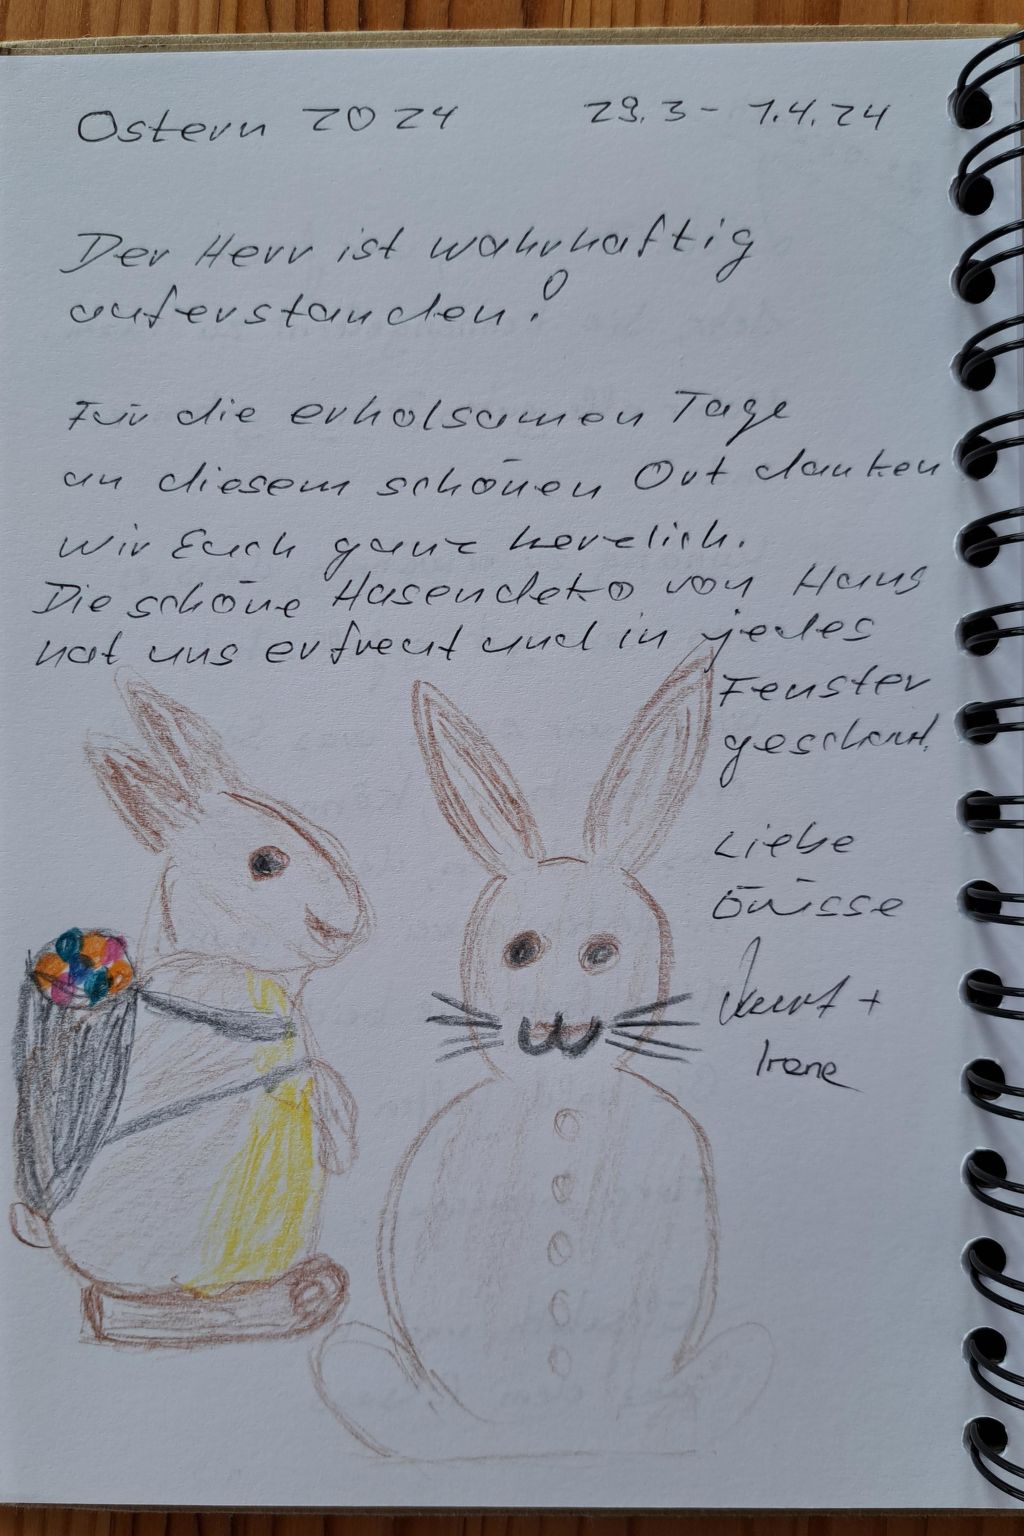 Ostern 2024 29.3 - 1.4.24
Der Herr ist wahrhaftig
auferstanden!
Für die erholsamen Tage
an diesem schönen Ort danken
wir Euch ganz herzlich.
Die schöne Hasendeko von Hans
hat uns erfreut und in jedes
Fenster
geschaut.
Liebe
Grüsse
Kurt +
Irene